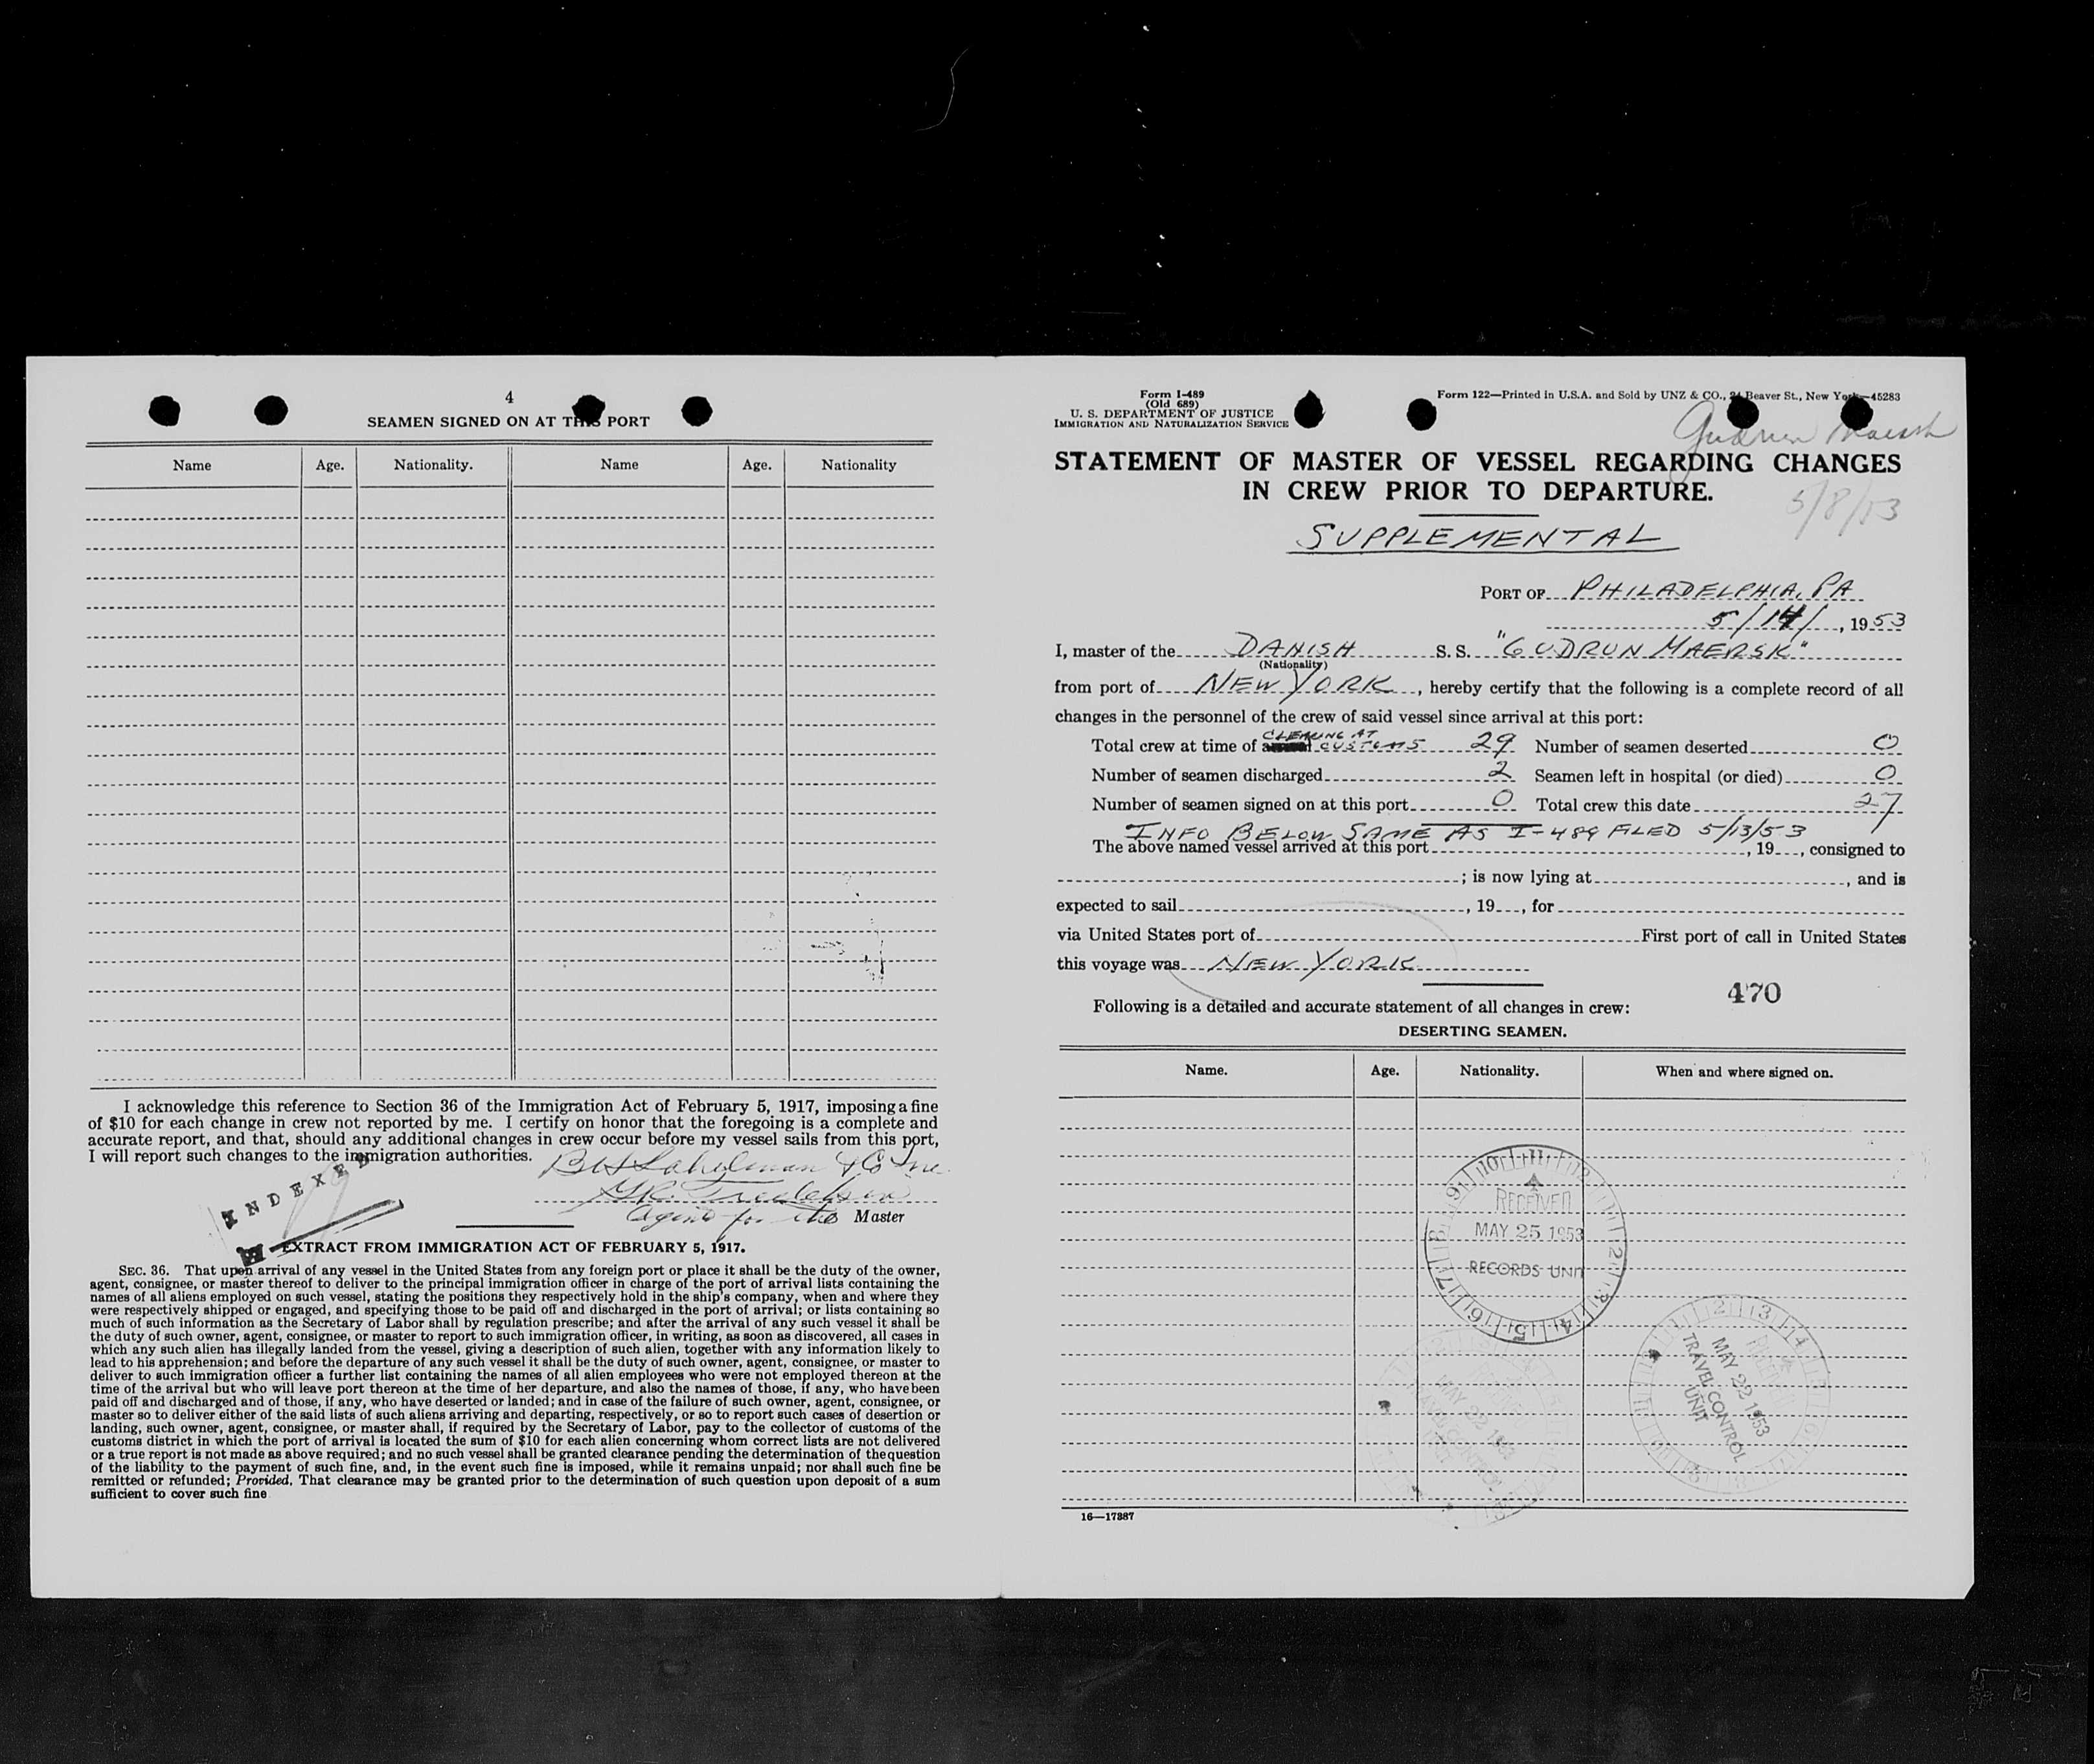 4
SEAMEN SIGNED ON AT THIS PORT
Name Age. Nationality. Name Age. Nationality
I acknowledge this reference to Section 36 of the Immigration Act of February 5, 1917, imposing a fine
of $10 for each change in crew not reported by me. I certify on honor that the foregoing is a complete and
accurate report, and that, should any additional changes in crew occur before my vessel sails from this port,
I will report such changes to the immigration authorities.
& Co Inc
Agent for the Master
INDEXED
EXTRACT FROM IMMIGRATION ACT OF FEBRUARY 5, 1917.
SEC. 36. That upon arrival of any vessel in the United States from any foreign port or place it shall be the duty of the owner,
agent, consignee, or master thereof to deliver to the principal immigration officer in charge of the port of arrival lists containing the
names of all aliens employed on such vessel, stating the positions they respectively hold in the ship's company, when and where they
were respectively shipped or engaged, and specifying those to be paid off and discharged in the port of arrival; or lists containing so
much of such information as the Secretary of Labor shall by regulation prescribe; and after the arrival of any such vessel it shall be
the duty of such owner, agent, consignee, or master to report to such immigration officer, in writing, as soon as discovered, all cases in
which any such alien has illegally landed from the vessel, giving a description of such alien, together with any information likely to
lead to his apprehension; and before the departure of any such vessel it shall be the duty of such owner, agent, consignee, or master to
deliver to such immigration officer a further list containing the names of all alien employees who were not employed thereon at the
time of the arrival but who will leave port thereon at the time of her departure, and also the names of those, if any, who have been
paid off and discharged and of those, if any, who have deserted or landed; and in case of the failure of such owner, agent, consignee, or
master so to deliver either of the said lists of such aliens arriving and departing, respectively, or so to report such cases of desertion or
landing, such owner, agent, consignee, or master shall, if required by the Secretary of Labor, pay to the collector of customs of the
customs district in which the port of arrival is located the sum of $10 for each alien concerning whom correct lists are not delivered
or a true report is not made as above required; and no such vessel shall be granted clearance pending the determination of the question
of the liability to the payment of such fine, and, in the event such fine is imposed, while it remains unpaid; nor shall such fine be
remitted or refunded; Provided, That clearance may be granted prior to the determination of such question upon deposit of a sum
sufficient to cover such fine
Form I-489
(Old 689)
U. S. DEPARTMENT OF JUSTICE
IMMIGRATION AND NATURALIZATION SERVICE
Form 122—Printed in U.S.A. and Sold by UNZ & CO., 24 Beaver St., New York—45283
Gudrun Maersk
5/8/53
STATEMENT OF MASTER OF VESSEL REGARDING CHANGES
IN CREW PRIOR TO DEPARTURE.
SUPPLEMENTAL
PORT OF PHILADELPHIA, PA
5/14/, 1953
I, master of the DANISH S. S. "GUDRUN MAERSK"
(Nationality)
from port of NEW YORK, hereby certify that the following is a complete record of all
changes in the personnel of the crew of said vessel since arrival at this port:
Total crew at time of CLEARING AT CUSTOMS 29 Number of seamen deserted 0
Number of seamen discharged 2 Seamen left in hospital (or died) 0
Number of seamen signed on at this port 0 Total crew this date 27
INFO BELOW SAME AS I-489 FILED 5/13/53
The above named vessel arrived at this port , 19 , consigned to
; is now lying at , and is
expected to sail , 19 , for
via United States port of First port of call in United States
this voyage was NEW YORK
470
Following is a detailed and accurate statement of all changes in crew:
DESERTING SEAMEN.
Name. Age. Nationality. When and where signed on.
RECEIVED
MAY 25 1953
RECORDS UNIT
MAY 22 1953
TRAVEL CONTROL
UNIT
MAY 22 1953
TRAVEL CONTROL
UNIT
16—17387